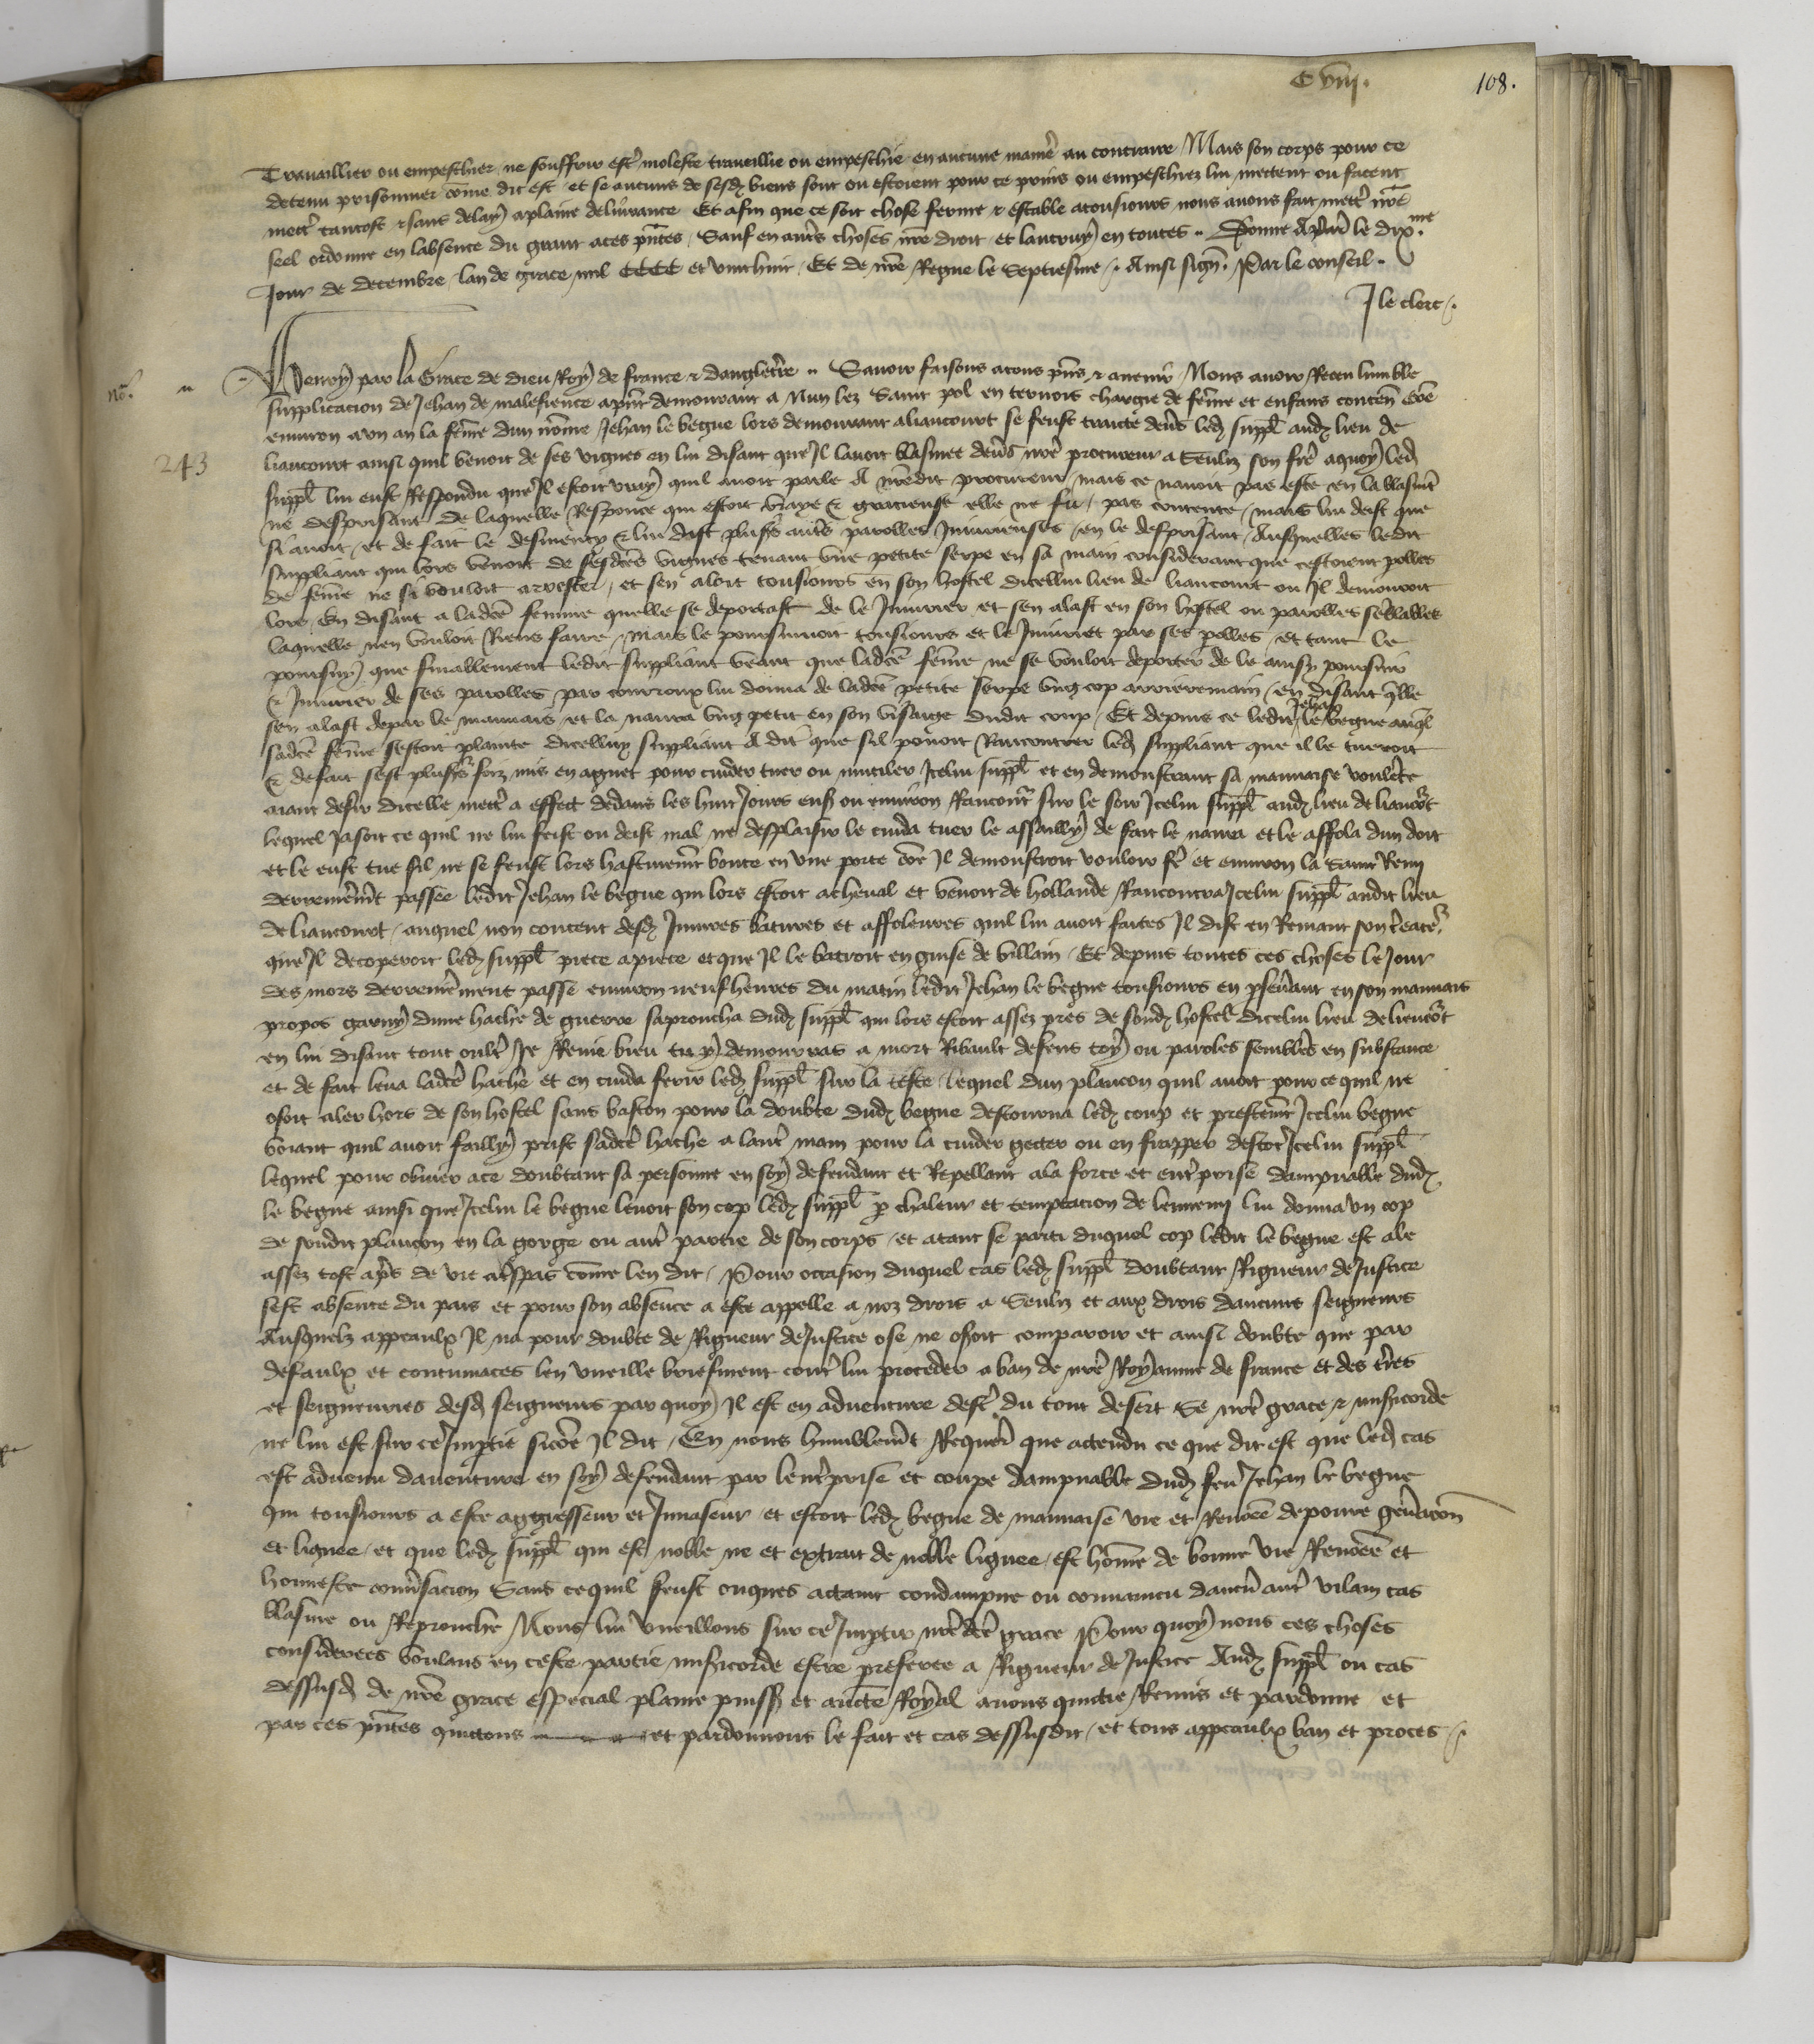 C VIII.
108.
Travaillier ou empeschier ne souffrir estr̃ moleste travaillie ou empeschie en aucune manĩe au contraire Mais son corps pour ce
detenu prisonnier cõme dit est et se aucuns de sesd biens sont ou estoient pour ce prins ou empeschiez lui mectent ou facent
mectr̃ tantost et sans delay a plaine delivrance Et afin que ce soit chose ferme et estable a tousiours nous avons fait mectr̃ nr̃e
seel ordonne en labsence du grant a ces pñtes Sauf en autr̃s choses nr̃e droit et lautruy en toutes Donne A Paris le dix me
Jour de decembre lan de grace mil CCCC et vint huit Et de nr̃e Regne le Septiesme Ainsi signe Par le conseil
J le clerc
No.
Henry par la Grace de dieu Roy de france et dangleterr̃e Savoir faisons a tous pñs et avenir Nous avoir Receu lumble
supplicacion de Jehan de malefience apñt demourant a Nun lez Saint pol en ternois chargie de fẽme et enfans conteñ cõe
environ a un an la fẽme dun nõme Jehan le begue lors demourant a liancourt se feust traicte dev̄s led suppl̃ aud lieu de
243
liancourt ainsi quil venoit de ses vignes en lui disant que Jl lavoit blasmee dev̄s nr̃e procureur a Senliz son fr̃e a quoy led
suppl̃ lui eust Respondu que Jl estoit vray quil avoit parle A nr̃edit procureur mais ce navoit pas este en la blasmãt
ne desprisant de laquelle Responce qui estoit vraye et gracieuse elle ne fu pas contente mais lui deist que
si avoit et de fait le desmenty et lui dist plus̃s autr̃s parolles Jniurieuses en le desprisant Ausquelles ledit
suppliant qui lors venoit de sesdc̃es vignes tenant une petite serpe en sa main considerant que cestoient polles
de fẽme ne si vouloit arrester et sen aloit tousiours en son hostel dicellui lieu de liancourt ou Jl demouroit
lors En disant a ladc̃e femme quelle se deportast de le Jniurier et sen alast en son hostel ou parolles sẽblables
laquelle nen vouloit Riens faire mais le poursuivoit tousiours et le Jniuriet par ses polles et tant le
poursuy que finablement ledit suppliant veant que ladc̃e fẽme ne se vouloit deporter de le ainsy poursuir
et Jniurier de ses parolles par courroux lui donna de ladc̃e petite serpe ung cop arrieremain en disant q̃lle
sen alast depar le mauvais et la navra ung petit en son visaige dudit coup Et depuis ce ledit Jehan le begue auq̃l
sadc̃e fẽme sestoit plainte dicelluy suppliant A dit que sil povoit Rancontrer led suppliant que il le tueroit
et defait sest plus̃s foiz mis en aguet pour cuider tuer ou mutiler Jcelui suppl̃ et en demonstrant sa mauvaise voulẽte
aiant desir dicelle mectr̃ a effect dedans les huit Jours ens̃ ou environ Rancontr̃ sur le soir Jcelui suppl̃ aud lieu de liancõrt
lequel Jasoit ce quil ne lui feist ou deist mal ne desplaisir le cuida tuer le assailly de fait le navra et le affola dun doit
et le eust tue sil ne se feust lors hastivemẽt boute en une porte cõe Jl demonstroit vouloir fr̃e et environ la Saint Remi
derrenierem̃t passee ledit Jehan le begue qui lors estoit a cheval et venoit de hollande Rancontra Jcelui suppl̃ audit lieu
de liancourt auquel non content desd Jniures batures et affoleures quil lui avoit faites Jl dist en Reniant son c̃eateᵣ
que Jl decoperoit led suppl̃ piece a piece et que Jl le batroit en guise de villain Et depuis toutes ces choses le Jour
des mors derrenierement passe environ neuf heures du matin ledit Jehan le begue tousiours en p̱seṽant en son mauvais
propos garny dune hache de guerre saproucha dud suppl̃ qui lors estoit assez pres de sond hostel dicelui lieu de liencõrt
en lui disant tout oultr̃ Je Renie bieu tu y demourras a mort Ribault defens toy ou paroles semblẽs en substance
et de fait leva ladc̃e hache et en cuida ferir led suppl̃ sur la teste lequel dun plancon quil avoit pour ce quil ne
osoit aler hors de son hostel sans baston pour la doubte dud begue destourna led coup et prestem̃t Jcelui begue
voiant quil avoit failly prist sadc̃e hache a lautr̃ main pour la cuider gecter ou en frapper destoc Jcelui suppl̃
lequel pour obvier a ce doubtant sa personne en soy defendant et Repellant a la force et entr̃prise dampnable dud
le begue ainsi que Jcelui le begue levoit son cop led suppl̃ p̱ chaleur et temptacion de lennemi lui donna un cop
de sondit plancon en la gorge ou autr̃ partie de son corps et atant se parti duquel cop ledit le begue est ale
assez tost apr̃s de vie a tr̃spas cõme len dit Pour occasion duquel cas led suppl̃ doubtant Rigueur de Justice
sest absente du pais et pour son absence a este appelle a noz drois a Senliz et aux drois daucuns seigneurs
Ausquelz appeaulx Jl na pour doubte de Rigueur de Justice ose ne osoit comparoir et ainsi doubte que par
defaulx et contumaces len vueille briefment contr̃ lui proceder a ban de nr̃e Royaume de france et des tr̃res
et seigneuries desd seigneurs par quoy Jl est en adventure destr̃ du tout desert Se nr̃e grace et mis̃icorde
ne lui est sur ce Jmptie sicõe Jl dit En nous humblem̃t Requer̃ que actendu ce que dit est que led cas
est advenu daventure en soy defendant par lentr̃prise et coupe dampnable dud feu Jehan le begue
qui tousiours a este aggresseur et Jnvaseur et estoit led begue de mauvaise vie et Renõee de povre geñacõn
et lignee et que led suppl̃ qui est noble ne et extrait de noble lignee est hõme de bonne vie Renõee et
honneste conṽsacion Sans ce quil feust onques actaint condampne ou convaincu daucũ autr̃ vilain cas
blasme ou Reprouche Nous lui vueillons sur ce Jmptir nr̃e dc̃e grace Pour quoy nous ces choses
considerees voulans en ceste partie mis̃icorde estre preferee a Rigueur de Justice Aud suppl̃ ou cas
dessusd de nr̃e grace especial plaine puiss̃ et auct̃e Royal avons quictie Remis et pardonne et
par ces pñtes quictons et pardonnons le fait et cas dessusdit et tous appeaulx ban et proces